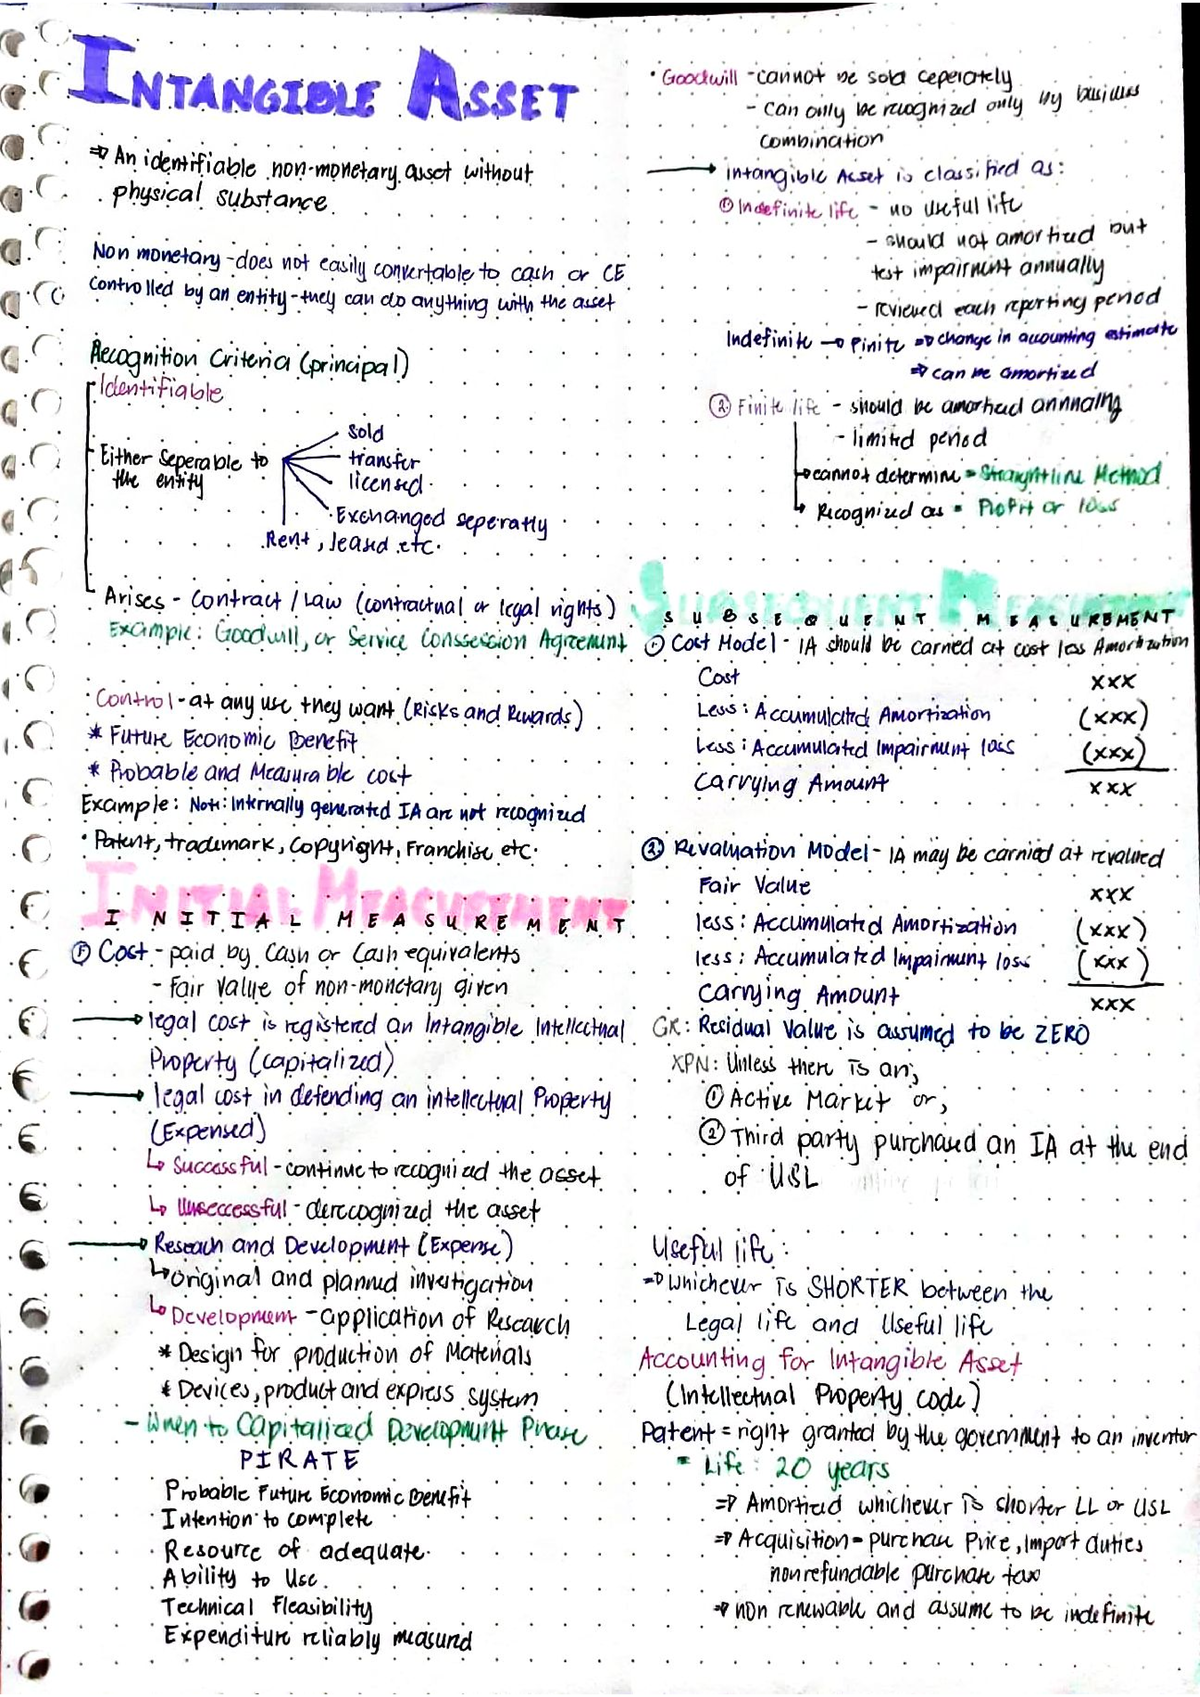 INTANGIBLE ASSET
⇒ An identifiable non-monetary asset without
physical substance
Non monetary - does not easily convertable to cash or CE
controlled by an entity - they can do anything with the asset
Recognition Criteria (principal)
Identifiable
Either Seperable to
the entity
sold
transfer
licensed
Exchanged seperatly
Rent, leased etc.
Arises - Contract / Law (contractual or legal rights)
Example: Goodwill, or Service Conssession Agreement
Control - at any use they want (Risks and Rewards)
* Future Economic Benefit
* Probable and Measurable cost
Example: Note: Internally generated IA are not recognized
• Patent, trademark, Copyright, Franchise etc.
INITIAL MEASUREMENT
① Cost - paid by Cash or Cash equivalents
- Fair Value of non-monetary given
→ legal cost is registered an Intangible Intellectual
Property (capitalized)
→ legal cost in defending an intellectual Property
(Expensed)
↳ Successful - continue to recognized the asset
↳ Unseccessful - derecognized the asset
→ Reseach and Development (Expense)
↳ original and planned investigation
↳ Development - application of Research
* Design for production of Materials
* Devices, product and express system
- When to Capitalized Development Phase
PIRATE
Probable Future Economic Benefit
Intention to complete
Resource of adequate
Ability to Use
Technical Fleasibility
Expenditure reliably measured
• Goodwill - cannot be sold ceperately
- can only be recognized only by business
combination
→ intangible Asset is classified as:
① Indefinite life - no useful life
- should not amortized but
test impairment annually
- reviewed each reporting period
Indefinite → Finite ⇒ change in accounting estimate
⇒ can be amortized
② Finite life - should be amortized annualy
- limited period
→ cannot determine = Straightline Method
↳ Recognized as = Profit or loss
SUBSEQUENT MEASUREMENT
① Cost Model - IA should be carried at cost less Amortization
Cost xxx
Less: Accumulated Amortization (xxx)
Less: Accumulated Impairment loss (xxx)
Carrying Amount xxx
② Revaluation Model - IA may be carried at revalued
Fair Value xxx
less: Accumulated Amortization (xxx)
less: Accumulated Impairment loss (xxx)
Carrying Amount xxx
GR: Residual Value is assumed to be ZERO
XPN: Unless there is an;
① Active Market or,
② Third party purchased an IA at the end
of USL
Useful life:
⇒ whichever is SHORTER between the
Legal life and Useful life
Accounting for Intangible Asset
(Intellectual Property code)
Patent = right granted by the government to an inventor
= Life: 20 years
⇒ Amortized whichever is shorter LL or USL
⇒ Acquisition = purchase Price, Import duties
nonrefundable purchase tax
⇒ non renewable and assume to be indefinite